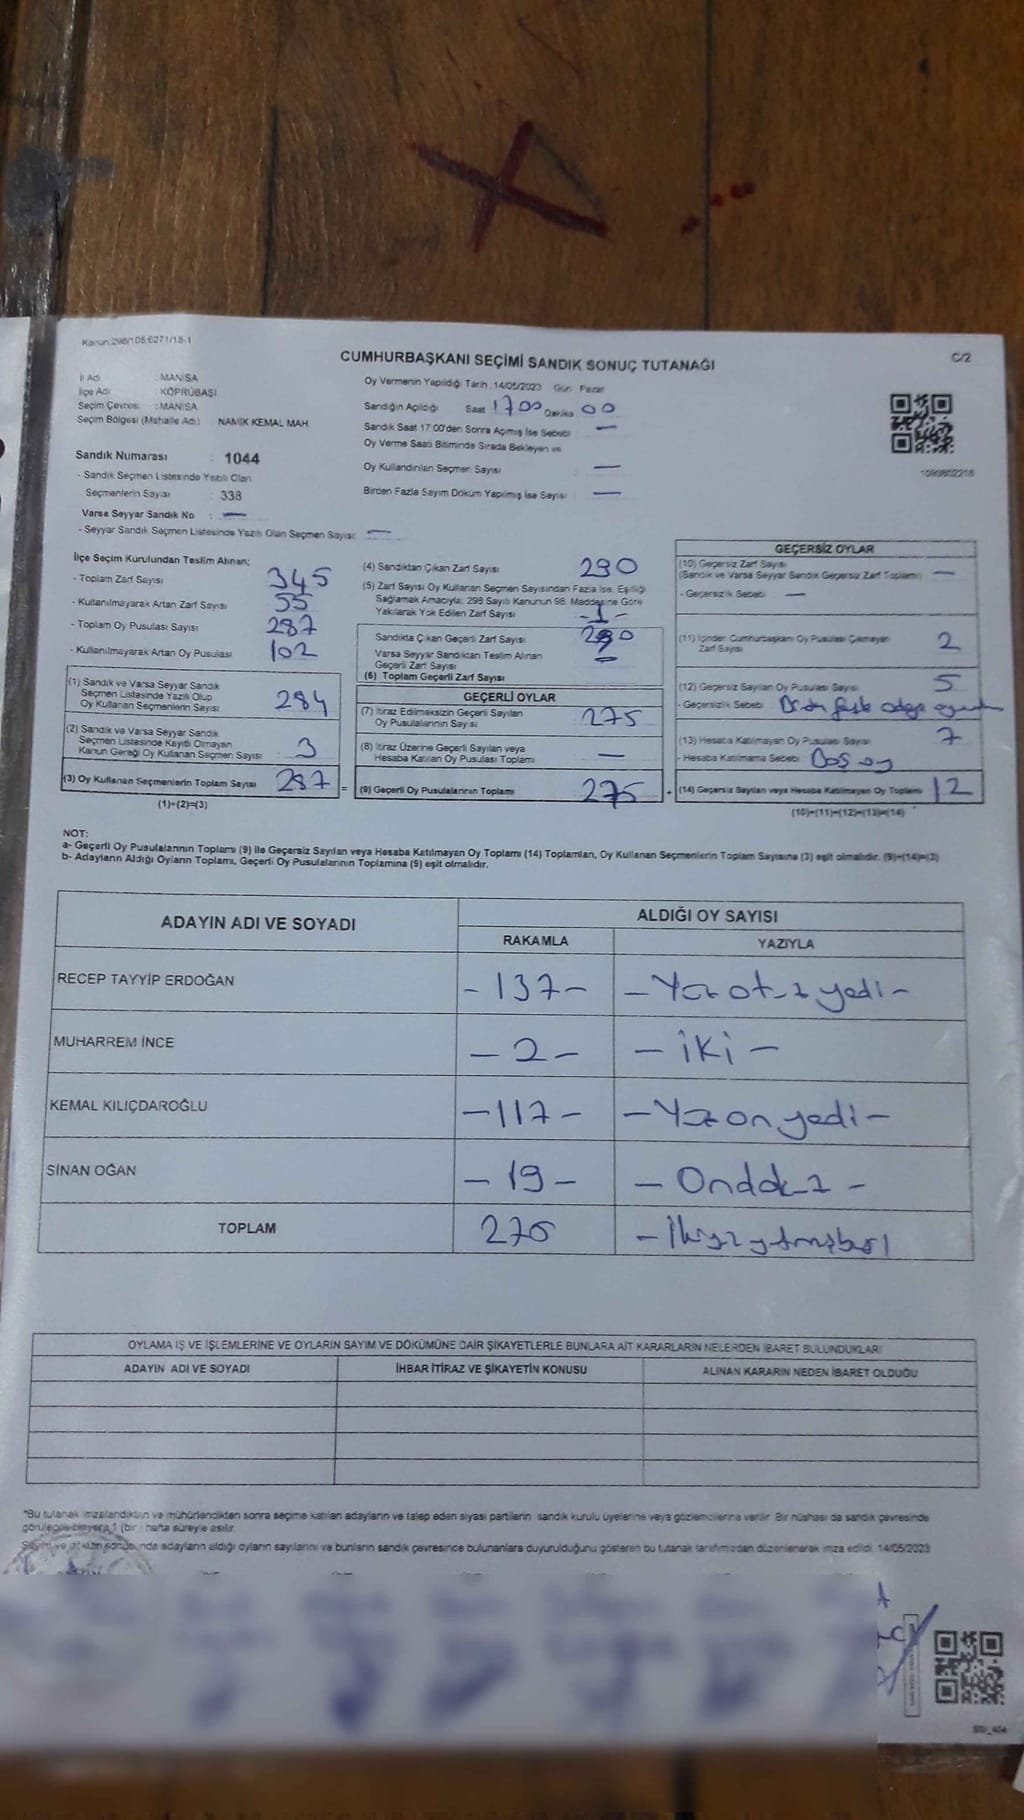 Kanun:298/105;6271/18-1
CUMHURBAŞKANI SEÇİMİ SANDIK SONUÇ TUTANAĞI
C/2
İl Adı : MANİSA
İlçe Adı : KÖPRÜBAŞI
Seçim Çevresi : MANİSA
Seçim Bölgesi (Mahalle Adı) NAMIK KEMAL MAH.
Sandık Numarası : 1044
- Sandık Seçmen Listesinde Yazılı Olan
Seçmenlerin Sayısı : 338
Varsa Seyyar Sandık No : —
- Seyyar Sandık Seçmen Listesinde Yazılı Olan Seçmen Sayısı: —
Oy Vermenin Yapıldığı Tarih :14/05/2023 Gün: Pazar
Sandığın Açıldığı Saat 1700 Dakika 00
Sandık Saat 17:00'den Sonra Açılmış İse Sebebi —
Oy Verme Saati Bitiminde Sırada Bekleyen ve
Oy Kullandırılan Seçmen Sayısı —
Birden Fazla Sayım Döküm Yapılmış İse Sayısı —
1590802218
İlçe Seçim Kurulundan Teslim Alınan;
- Toplam Zarf Sayısı 345
- Kullanılmayarak Artan Zarf Sayısı 55
- Toplam Oy Pusulası Sayısı 287
- Kullanılmayarak Artan Oy Pusulası 102
(1) Sandık ve Varsa Seyyar Sandık
Seçmen Listesinde Yazılı Olup
Oy Kullanan Seçmenlerin Sayısı 284
(2) Sandık ve Varsa Seyyar Sandık
Seçmen Listesinde Kayıtlı Olmayan
Kanun Gereği Oy Kullanan Seçmen Sayısı 3
(3) Oy Kullanan Seçmenlerin Toplam Sayısı 287
(1)+(2)=(3)
(4) Sandıktan Çıkan Zarf Sayısı 290
(5) Zarf Sayısı Oy Kullanan Seçmen Sayısından Fazla İse, Eşitliği
Sağlamak Amacıyla; 298 Sayılı Kanunun 98. Maddesine Göre
Yakılarak Yok Edilen Zarf Sayısı -1-
Sandıkta Çıkan Geçerli Zarf Sayısı
Varsa Seyyar Sandıktan Teslim Alınan
Geçerli Zarf Sayısı
(6) Toplam Geçerli Zarf Sayısı
GEÇERLİ OYLAR
(7) İtiraz Edilmeksizin Geçerli Sayılan
Oy Pusulalarının Sayısı 275
(8) İtiraz Üzerine Geçerli Sayılan veya
Hesaba Katılan Oy Pusulası Toplamı —
= (9) Geçerli Oy Pusulalarının Toplamı 275
GEÇERSİZ OYLAR
(10) Geçersiz Zarf Sayısı
(Sandık ve Varsa Seyyar Sandık Geçersiz Zarf Toplamı) —
- Geçersizlik Sebebi —
(11) İçinden Cumhurbaşkanı Oy Pusulası Çıkmayan
Zarf Sayısı 2
(12) Geçersiz Sayılan Oy Pusulası Sayısı 5
- Geçersizlik Sebebi
(13) Hesaba Katılmayan Oy Pusulası Sayısı 7
- Hesaba Katılmama Sebebi Boş oy
+ (14) Geçersiz Sayılan veya Hesaba Katılmayan Oy Toplamı 12
(10)+(11)+(12)+(13)=(14)
NOT:
a- Geçerli Oy Pusulalarının Toplamı (9) ile Geçersiz Sayılan veya Hesaba Katılmayan Oy Toplamı (14) Toplamları, Oy Kullanan Seçmenlerin Toplam Sayısına (3) eşit olmalıdır. (9)+(14)=(3)
b- Adayların Aldığı Oyların Toplamı, Geçerli Oy Pusulalarının Toplamına (9) eşit olmalıdır.
ADAYIN ADI VE SOYADI ALDIĞI OY SAYISI
RAKAMLA YAZIYLA
RECEP TAYYİP ERDOĞAN - 137 - - Yüzotuzyedi -
MUHARREM İNCE - 2 - - iki -
KEMAL KILIÇDAROĞLU - 117 - - Yüzonyedi -
SİNAN OĞAN - 19 - - Ondokuz -
TOPLAM 275 - İkiyüzyetmişbeş
OYLAMA İŞ VE İŞLEMLERİNE VE OYLARIN SAYIM VE DÖKÜMÜNE DAİR ŞİKAYETLERLE BUNLARA AİT KARARLARIN NELERDEN İBARET BULUNDUKLARI
ADAYIN ADI VE SOYADI İHBAR İTİRAZ VE ŞİKAYETİN KONUSU ALINAN KARARIN NEDEN İBARET OLDUĞU
*Bu tutanak imzalandıktan ve mühürlendikten sonra seçime katılan adayların ve talep eden siyasi partilerin sandık kurulu üyelerine veya gözlemcilerine verilir. Bir nüshası da sandık çevresinde
görülebilir yere 1 (bir) hafta süreyle asılır.
Sayım ve döküm sonucunda adayların aldığı oyların sayılarını ve bunların sandık çevresinde bulunanlara duyurulduğunu gösteren bu tutanak tarafımızdan düzenlenerek imza edildi. 14/05/2023